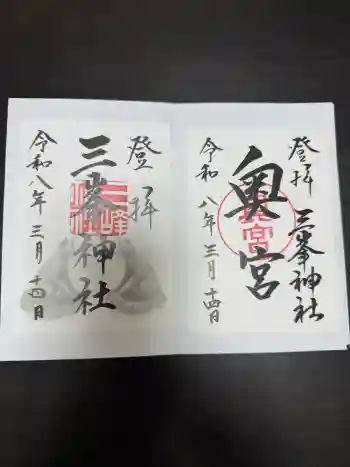 登拝
三峯神社
奥宮
令和八年三月十四日
登拝
三峯神社
三峰
令和八年三月十四日